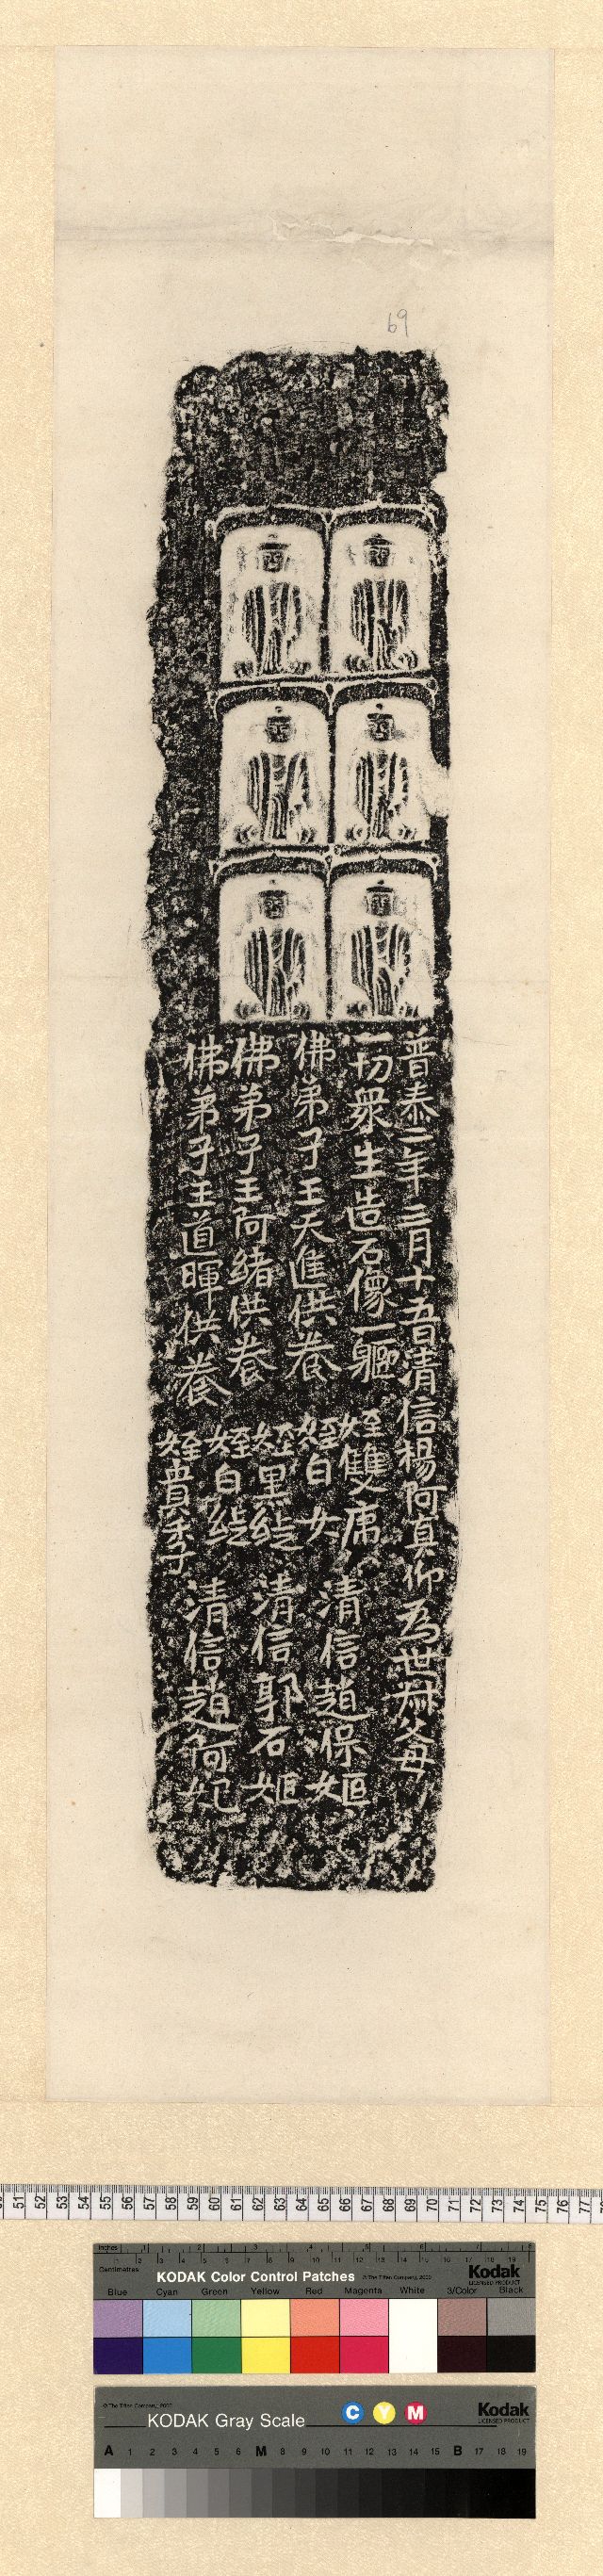 69
普泰二年二月十五日清信楊阿真仰為世䣊父母
一切衆生造石像一軀
佛弟子王天進供養
佛弟子王阿緒供養
佛弟子王道暉供養
姪雙虎
姪白女
姪黑
姪白
姪貴
清信趙保姬
清信郭石姬
清信趙阿妃
51 52 53 54 55 56 57 58 59 60 61 62 63 64 65 66 67 68 69 70 71 72 73 74 75 76 77
Inches 1 2 3 4 5 6 7 8
Centimetres 1 2 3 4 5 6 7 8 9 10 11 12 13 14 15 16 17 18 19
KODAK Color Control Patches © The Tiffen Company, 2000 Kodak
LICENSED PRODUCT
Blue Cyan Green Yellow Red Magenta White 3/Color Black
© The Tiffen Company, 2000
KODAK Gray Scale C Y M Kodak
LICENSED PRODUCT
A 1 2 3 4 5 6 M 8 9 10 11 12 13 14 15 B 17 18 19